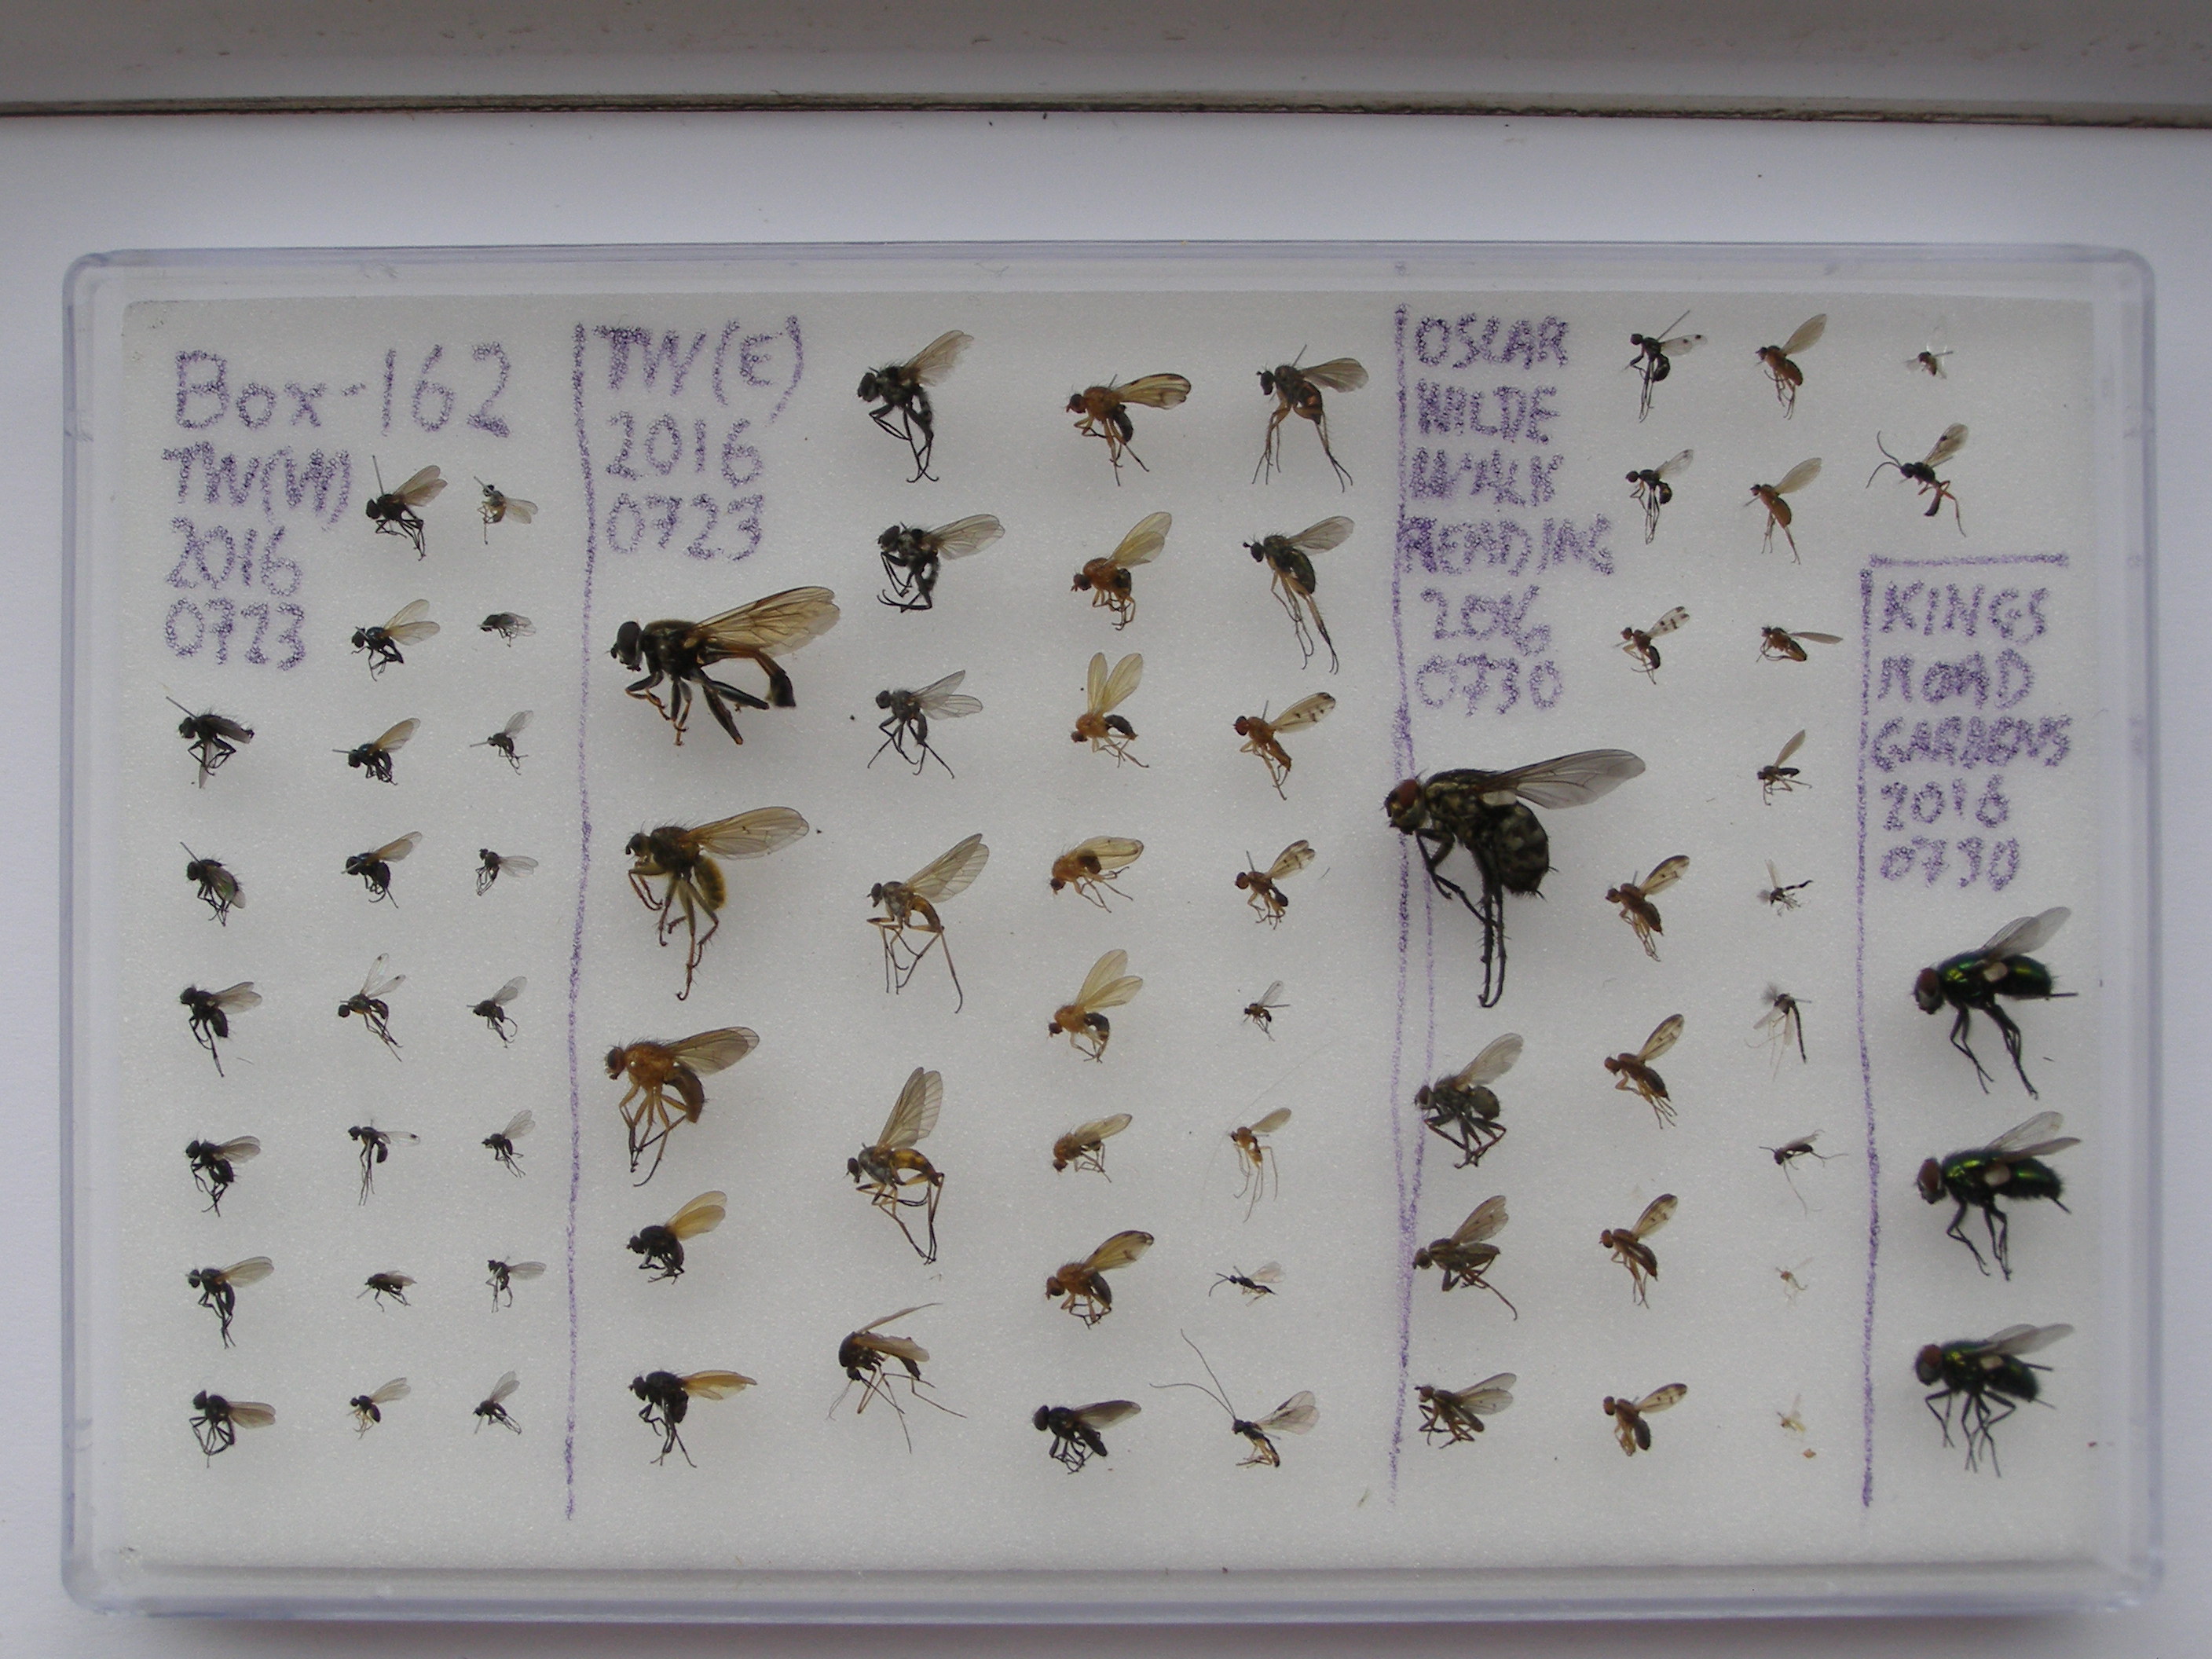 Box-162
TW(W)
2016
0723
TW(E)
2016
0723
OSCAR
WILDE
WALK
READING
2016
0730
KINGS
ROAD
GARDENS
2016
0730